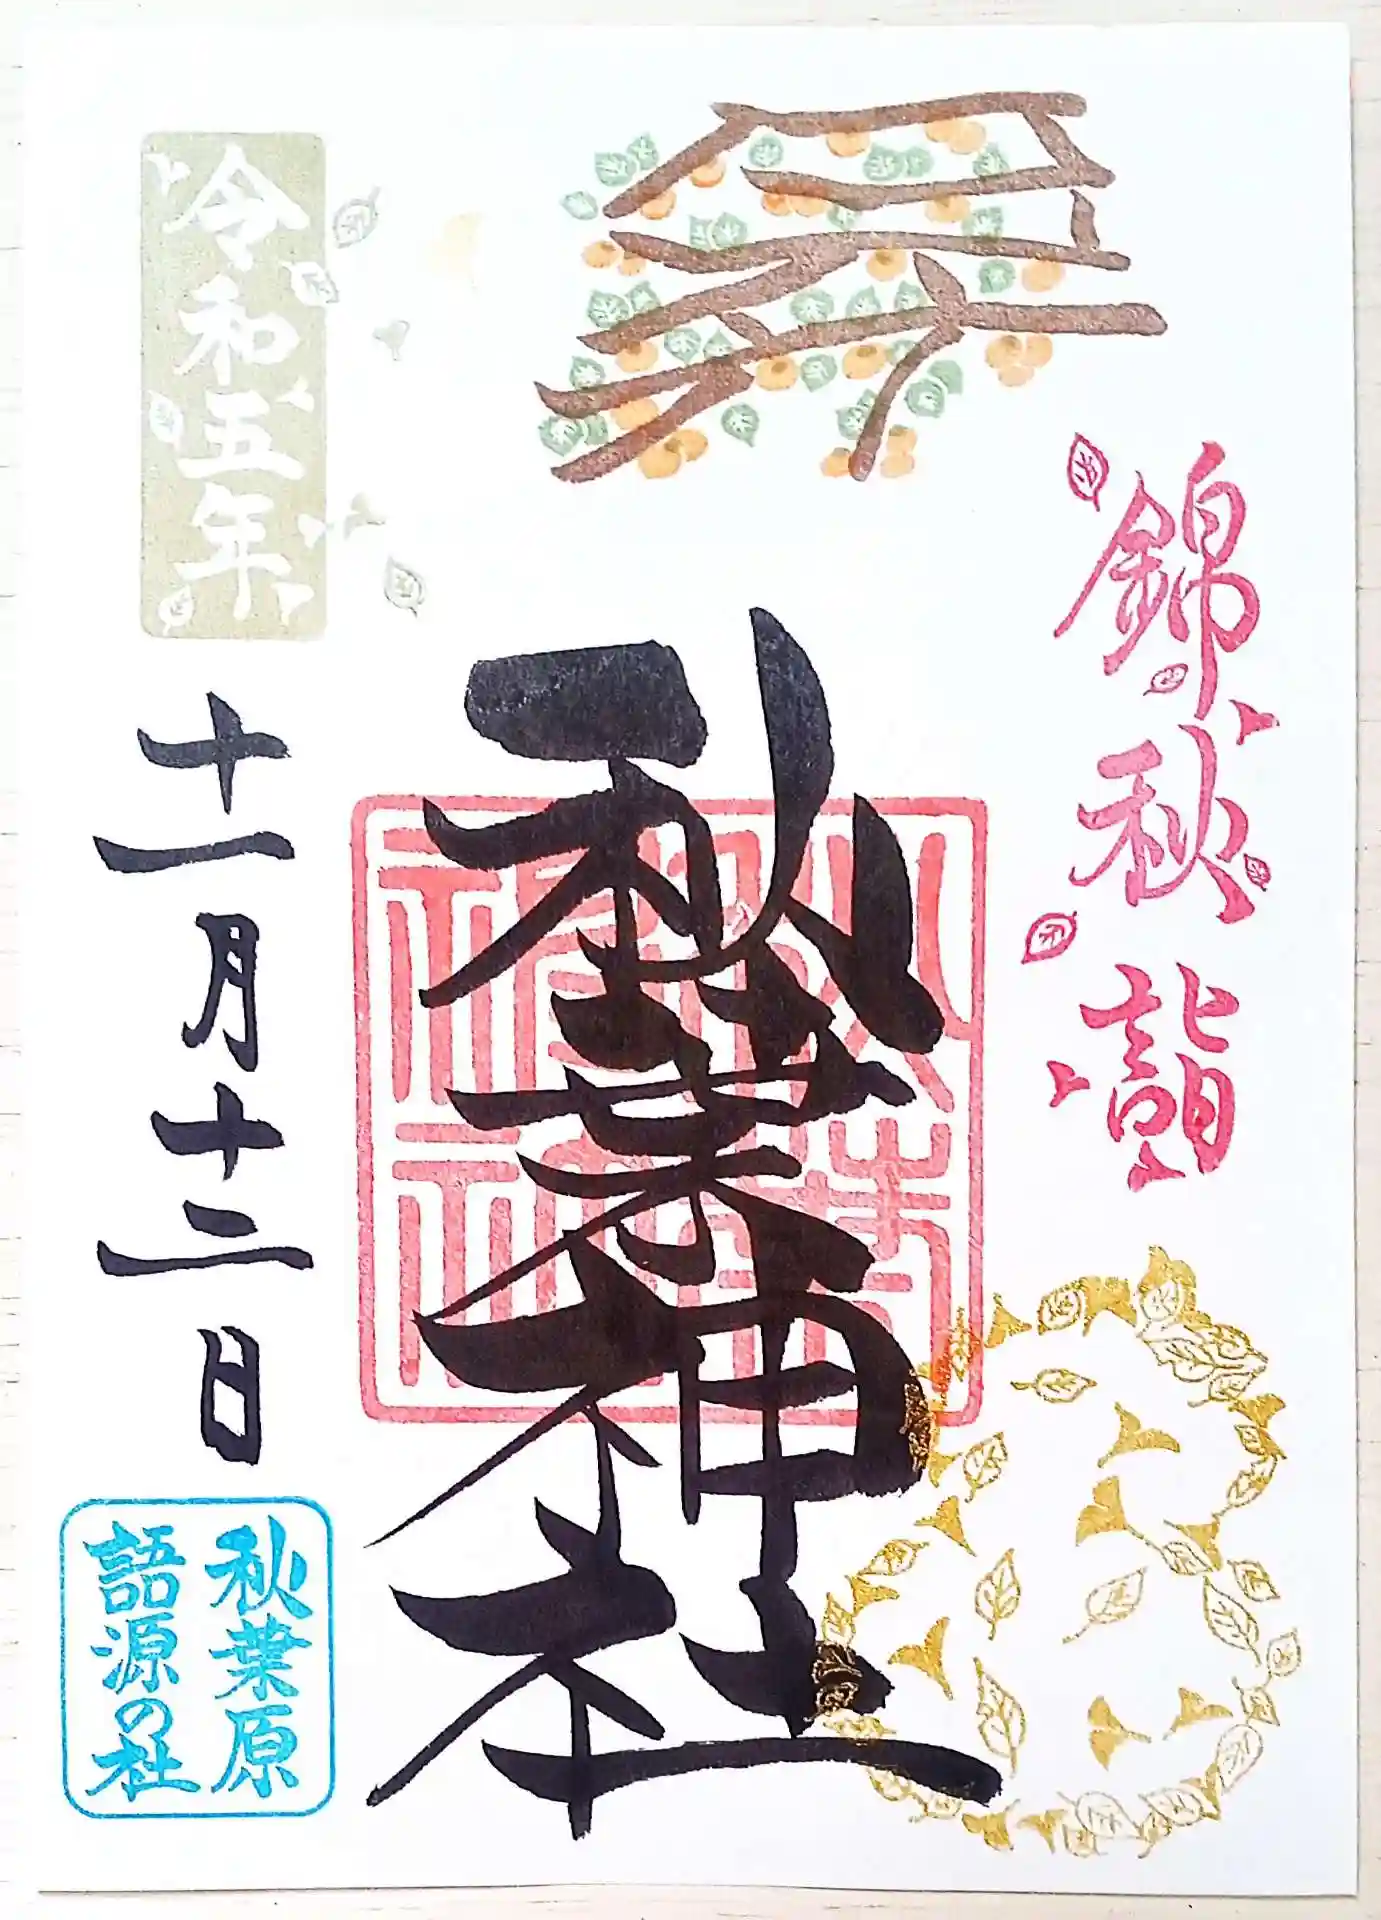 錦秋詣
秋葉神社
令和五年
十一月十二日
秋葉原
語源の社